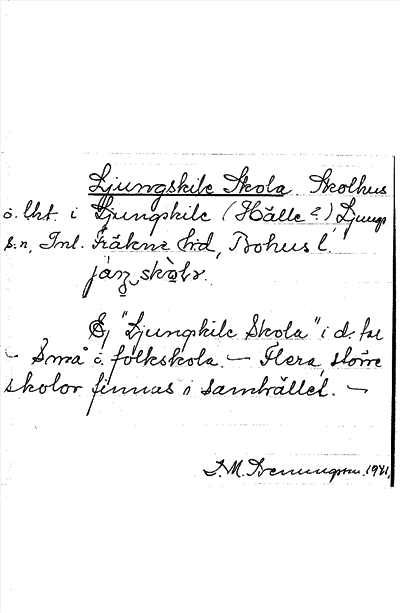 Ljungskile Skola Skolhus
o. lht. i Ljungskile (Hälle?) Ljungs
s.n, Inl. Fräkne hd, Bohus l.

Ej "Ljungskile Skola" i d. tal
– Små o. folkskola. – Flera större
skolor finnas i samhället. –
1971.